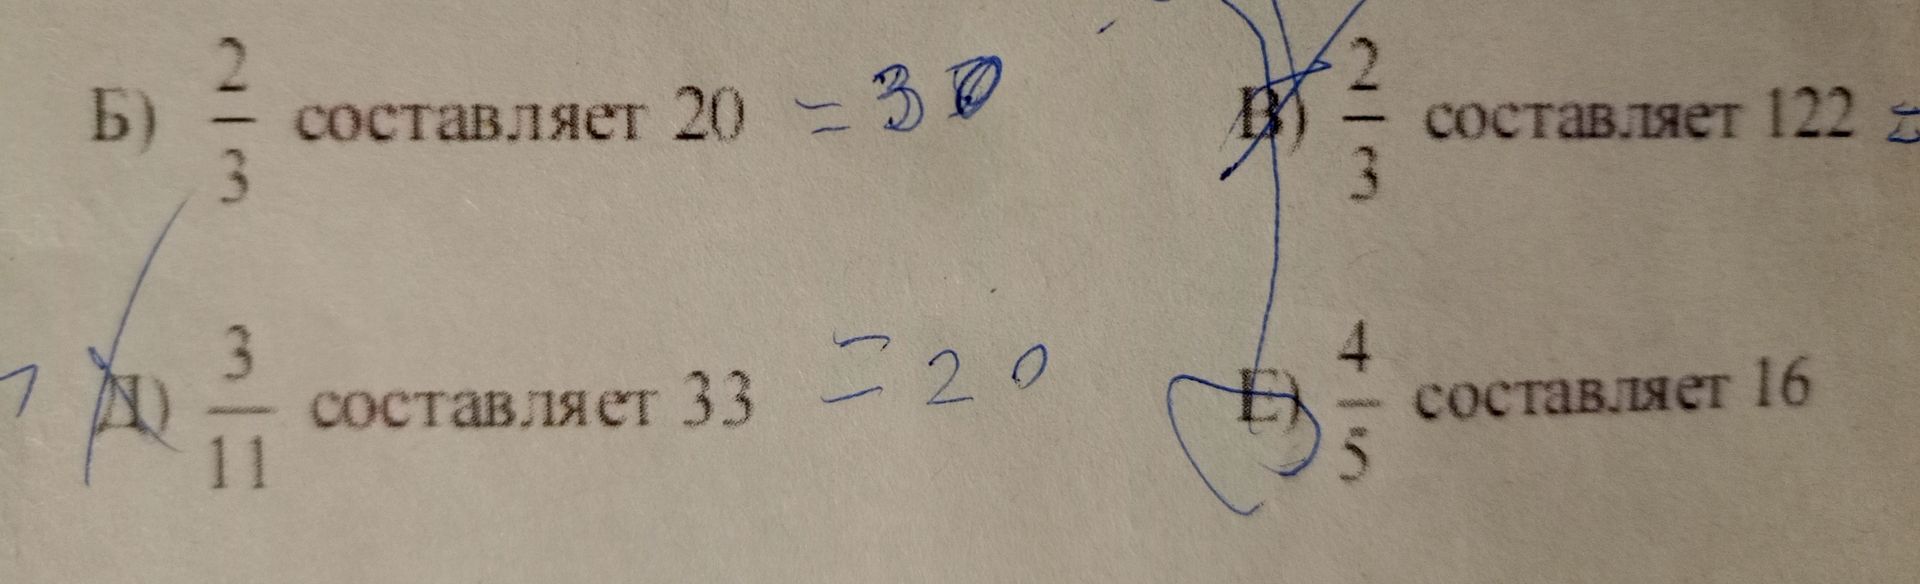 Б) 2/3 составляет 20 = 30
В) 2/3 составляет 122 =
Д) 3/11 составляет 33 = 20
Е) 4/5 составляет 16